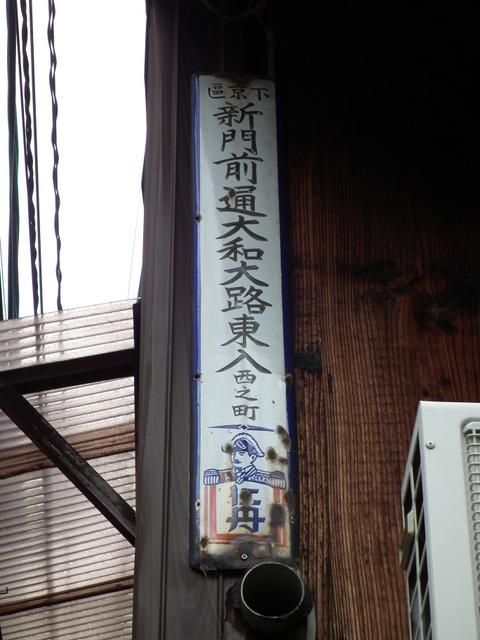 下京區
新門前通大和大路東入西之町
仁丹